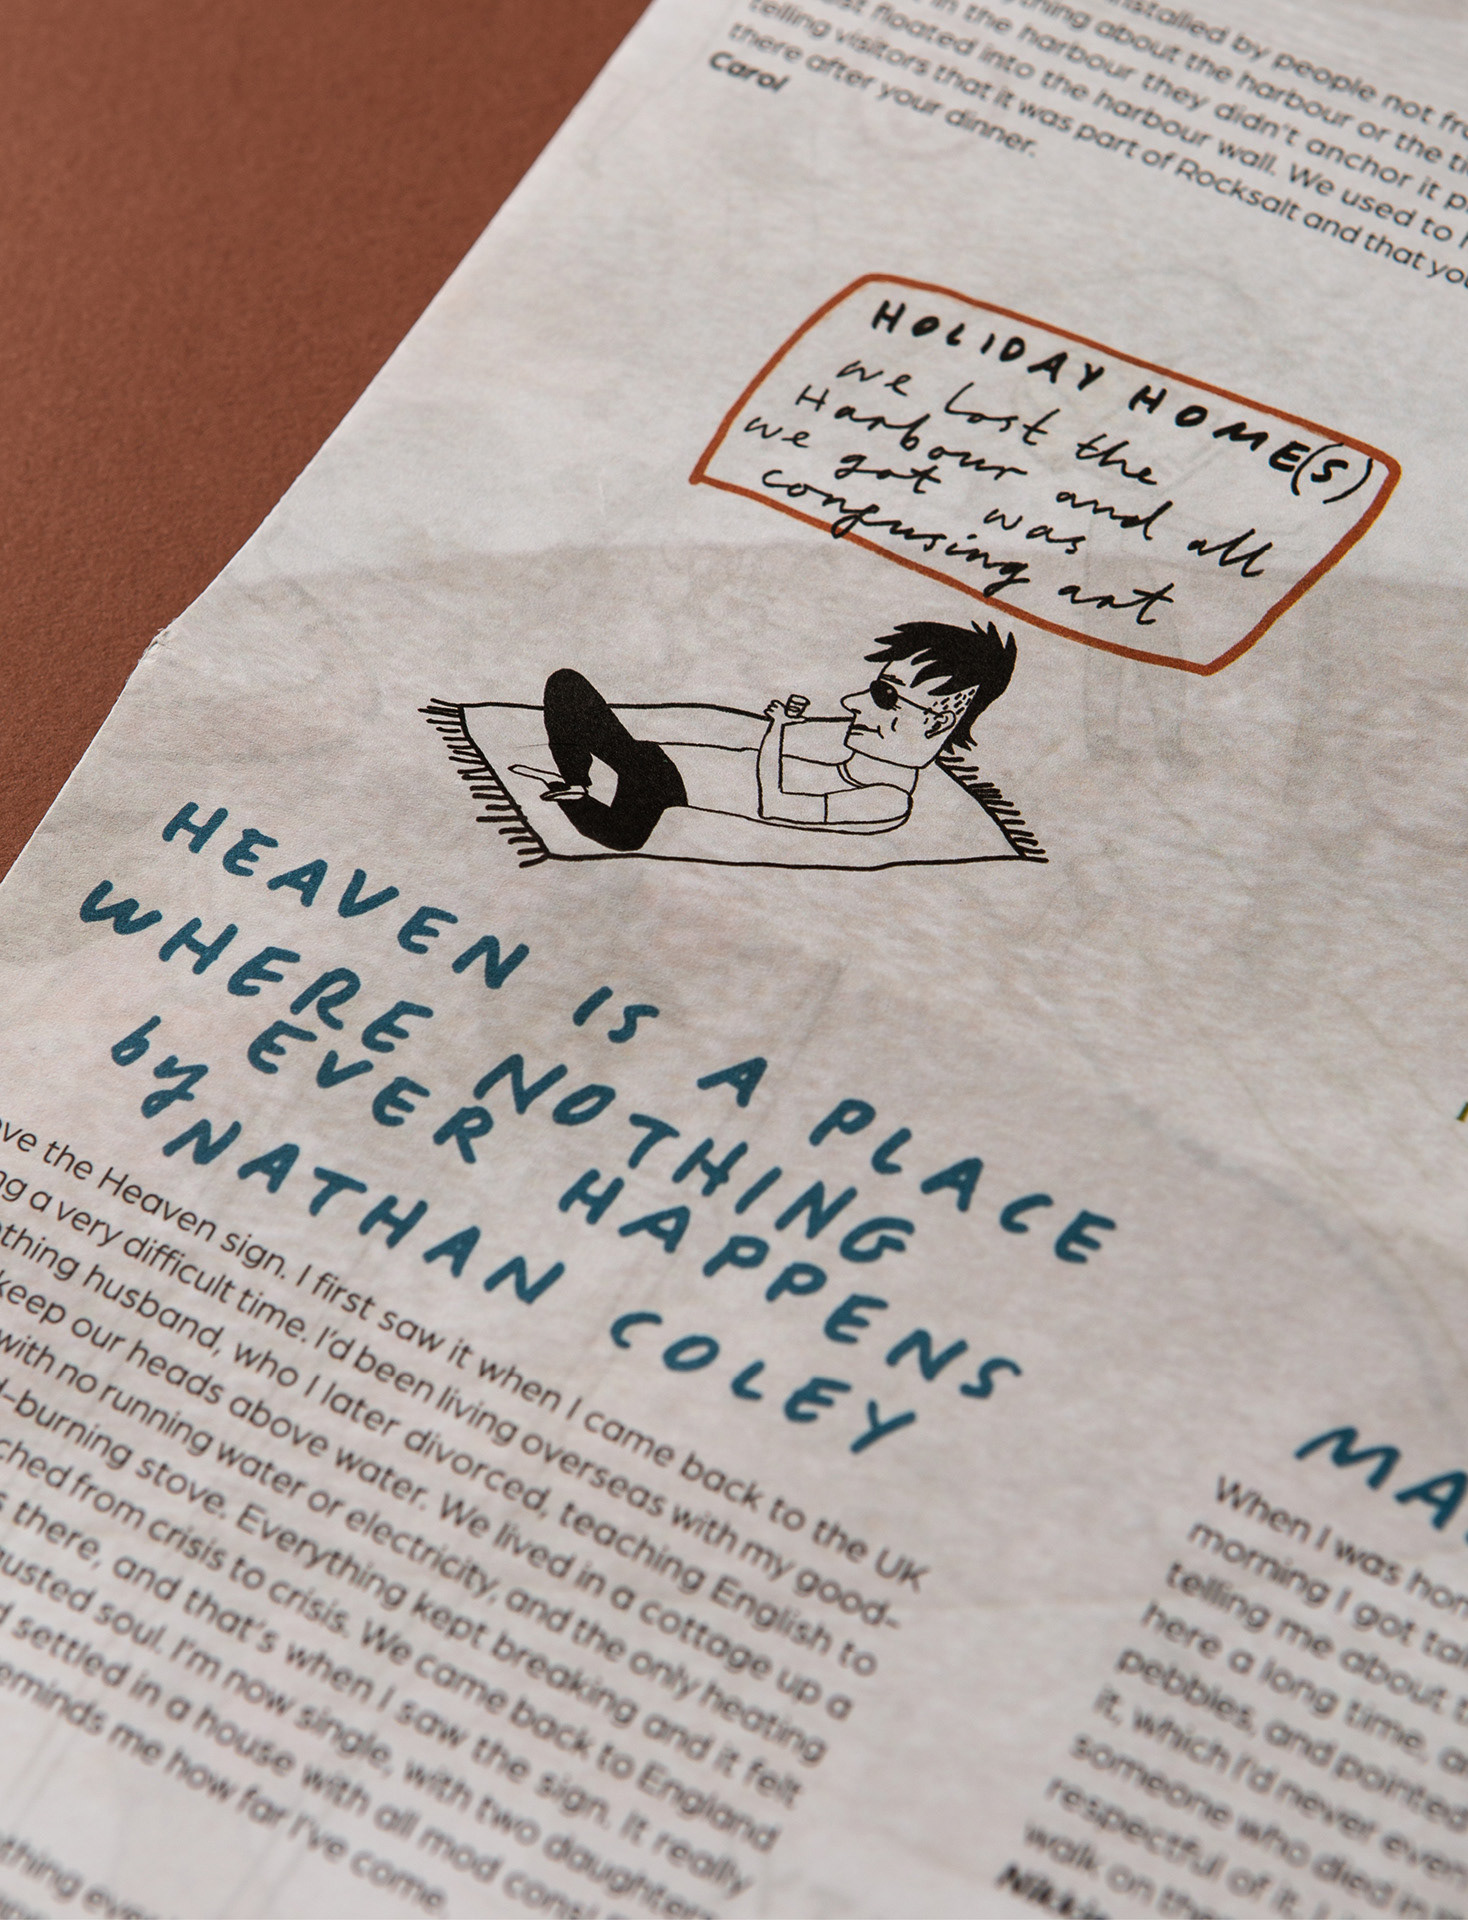 installed by people not
ything about the harbour or the
in the harbour they didn't anchor it
floated into the harbour wall. We used to
telling visitors that it was part of Rocksalt and that you
there after your dinner.
Carol
HOLIDAY HOME(S)
we lost the
Harbour and all
we got was
confusing art
HEAVEN IS A PLACE
WHERE NOTHING
EVER HAPPENS
by NATHAN COLEY
the Heaven sign. I first saw it when I came back to the UK
a very difficult time. I'd been living overseas with my good-
husband, who I later divorced, teaching English to
keep our heads above water. We lived in a cottage up a
with no running water or electricity, and the only heating
-burning stove. Everything kept breaking and it felt
from crisis to crisis. We came back to England
there, and that's when I saw the sign. It really
soul. I'm now single, with two daughters
settled in a house with all mod cons
reminds me how far I've come.
MA
When I was
morning I got
telling me about
here a long time,
pebbles, and pointed
it, which I'd never even
someone who died in
respectful of it. I
walk on the
Nikki